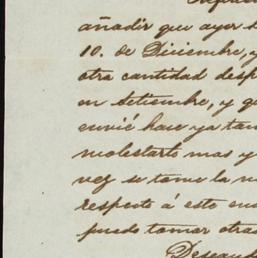 añadir que ayer
10. de Diciembre, y
otra cantidad desp
en Setiembre, y q
envié hace ya tan
molestarlo mas y
vez se tome la m
respecto á este
puedo tomar otra
Deseand